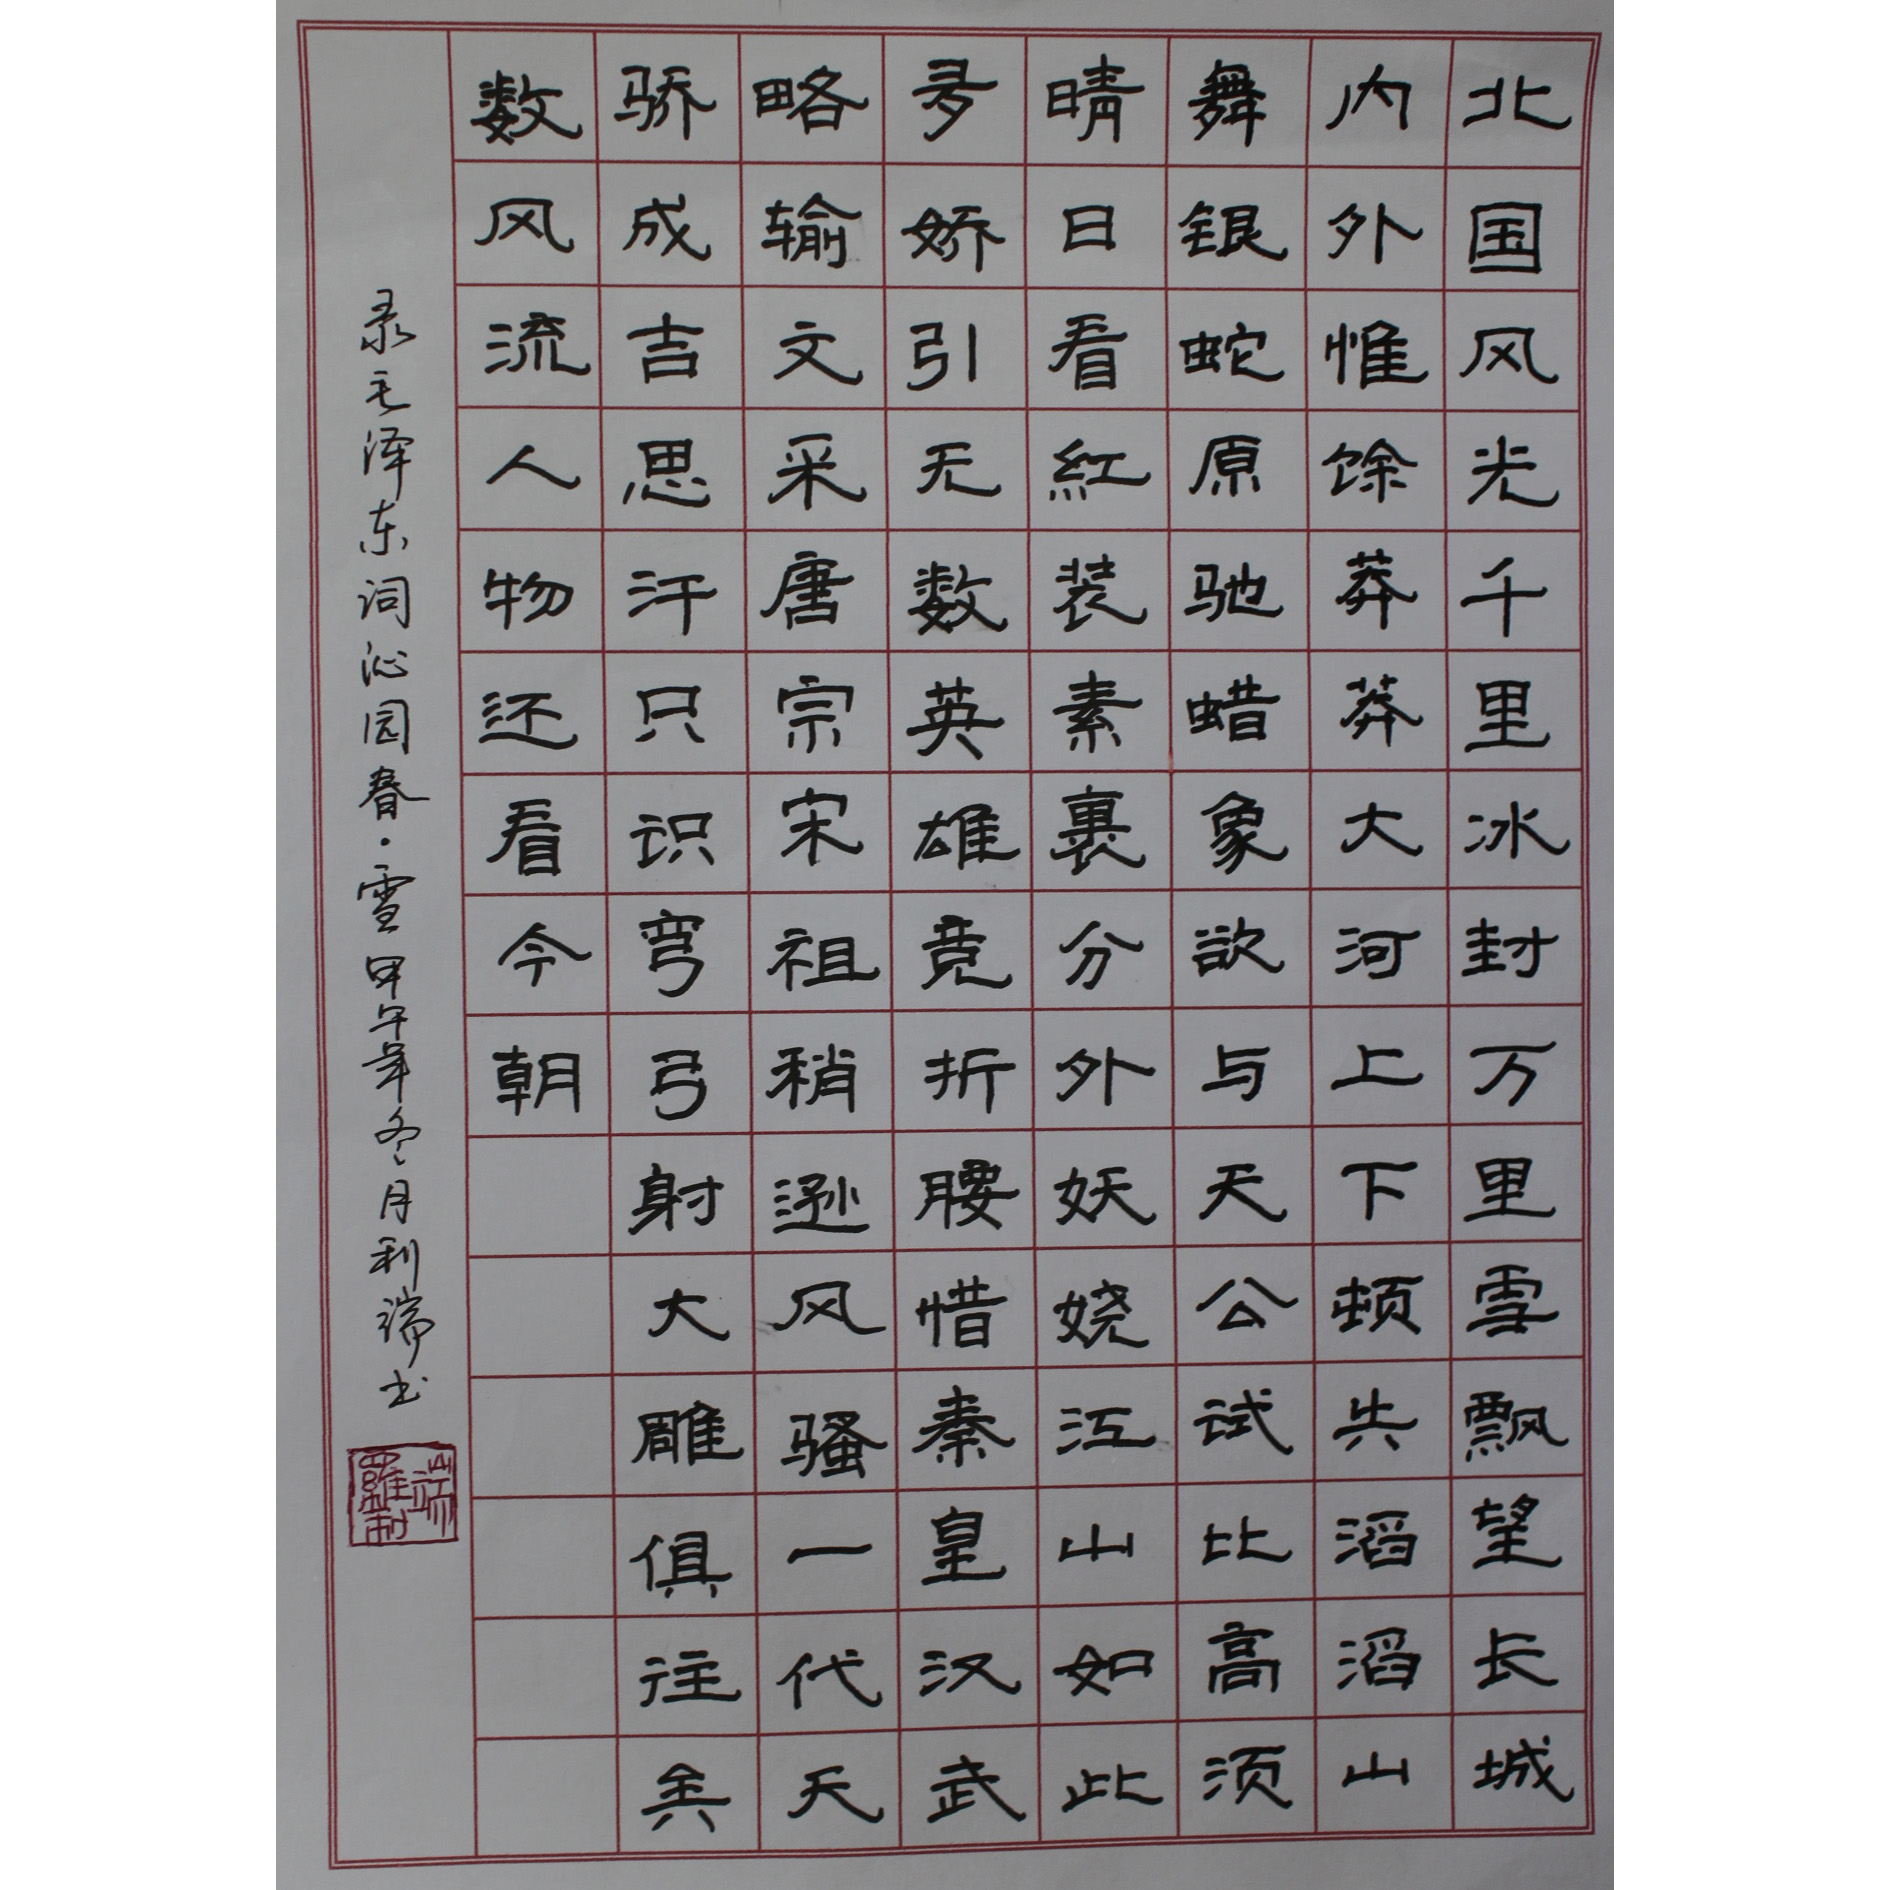 北国风光千里冰封万里雪飘望长城
内外惟馀莽莽大河上下顿失滔滔山
舞银蛇原驰蜡象欲与天公试比高须
晴日看紅装素裹分外妖娆江山如此
多娇引无数英雄竞折腰惜秦皇汉武
略输文采唐宗宋祖稍逊风骚一代天
骄成吉思汗只识弯弓射大雕俱往矣
数风流人物还看今朝
录毛泽东词沁园春·雪甲午年冬月利端书